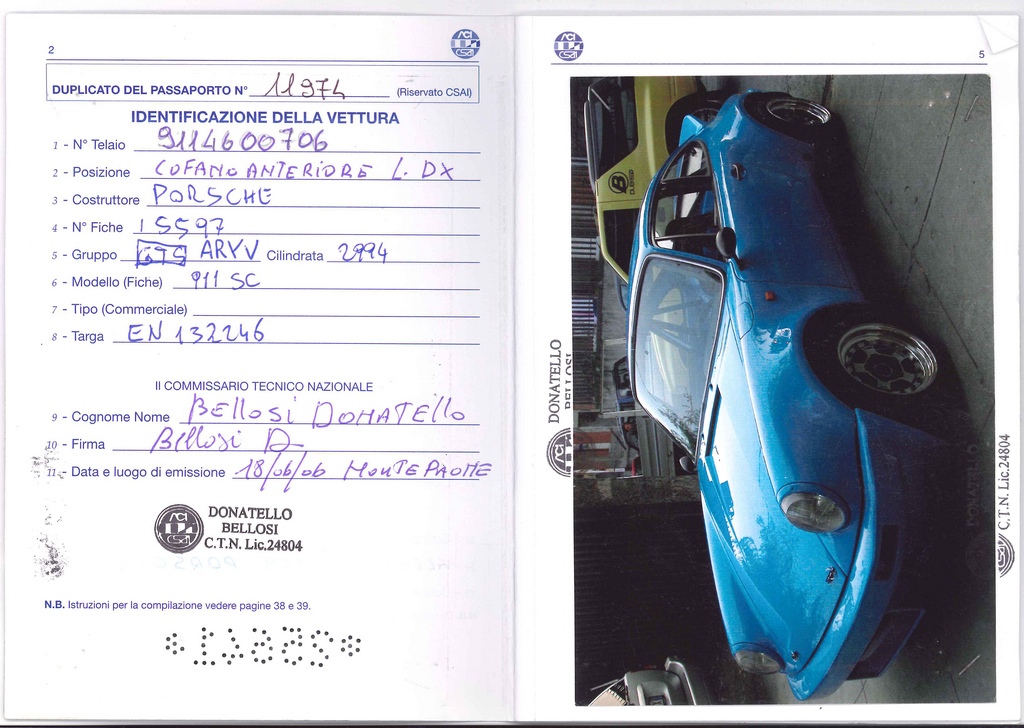 2
ACI
CSAI
DUPLICATO DEL PASSAPORTO N° 11974 (Riservato CSAI)
IDENTIFICAZIONE DELLA VETTURA
1 - N° Telaio 9114600706
2 - Posizione COFANO ANTERIORE L. DX
3 - Costruttore PORSCHE
4 - N° Fiche 15597
5 - Gruppo GTS ARYV Cilindrata 2994
6 - Modello (Fiche) 911 SC
7 - Tipo (Commerciale)
8 - Targa EN 132246
Il COMMISSARIO TECNICO NAZIONALE
9 - Cognome Nome BELLOSI DONATELLO
10 - Firma Bellosi D
11 - Data e luogo di emissione 18/06/06 MONTEPAONE
ACI
CSAI
DONATELLO
BELLOSI
C.T.N. Lic.24804
N.B. Istruzioni per la compilazione vedere pagine 38 e 39.
5
ACI
CSAI
DONATELLO
BELLOSI
ACI
B
DONATELLO
C.T.N. Lic.24804
CSAI